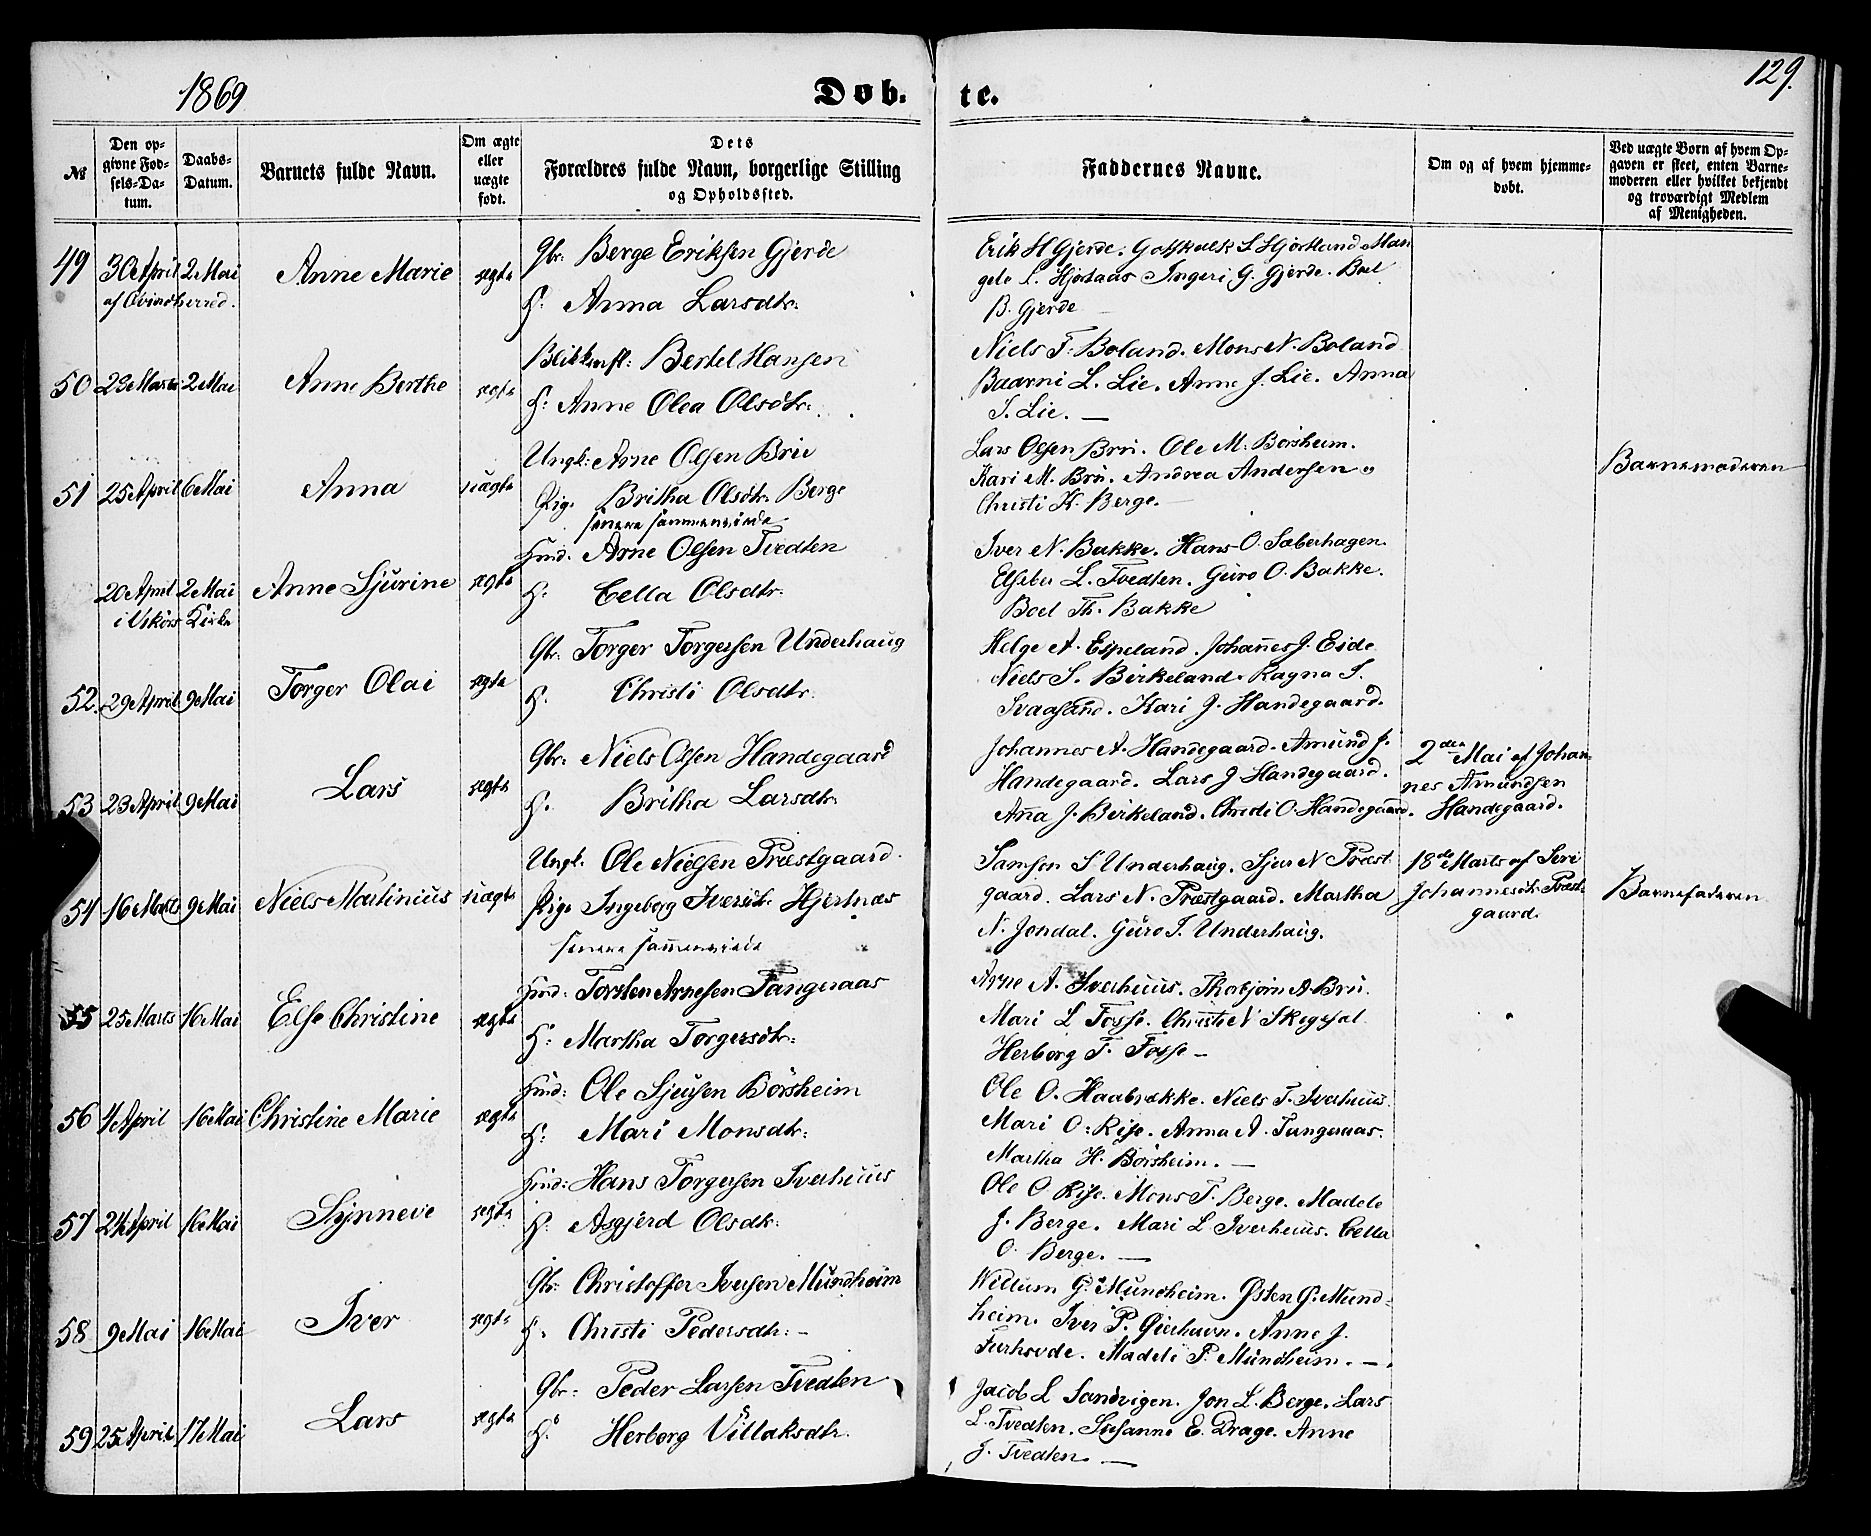 1869
Døb.
te.
129.
№
Den opgivne Fødsels-Datum.
Daabs-Datum.
Barnets fulde Navn.
Om ægte eller uægte født.
Dets Forældres fulde Navn, borgerlige Stilling og Opholdssted.
Faddernes Navne.
Om og af hvem hjemmedøbt.
Ved uægte Børn af hvem Opgaven er skeet, enten Barnemoderen eller hvilket bekjendt og troværdigt Medlem af Menigheden.
49 30 April 2 Mai Anne Marie ægte Gbr: Berge Eriksen Gjerde
af Qvindherred.
H: Anna Larsdtr:
Erik H Gjerde. Gotskalk S Hjortland Man
gele L. Hjortaas Ingeri G. Gjerde. Boel
B. Gjerde
50 23 Marts 2 Mai Anne Berthe ægte Blikkensl: Bertel Hansen
H: Anne Olea Olsdtr:
Niels T: Boland. Mons N. Boland
Baarni L. Lie. Anne J. Lie. Anna
I. Lie. —
51 25 April 6 Mai Anna uægte Ungk: Arne Olsen Brue
Pig. Britha Olsdtr. Berge
senere sammenviede
Lars Olsen Bru. Ole M: Børsheim.
Kari M. Bru. Andrea Andersen o
Christi K. Berge. —
Barnemoderen
20 April 2 Mai Anne Sjurine ægte Husd: Arne Olsen Tvedten
i Vikørs Kirke
H: Cella Olsdtr:
Iver N. Bakke. Hans O. Sæberhagen.
Elseber L. Tvedten. Guro O. Bakke.
Boel Th. Bakke
52. 29 April 9 Mai Torger Olai ægte Gbr: Torger Torgersen Underhaug
H: Christi Olsdtr:
Helge A. Espeland. Johannes J. Eide
Niels S. Birkeland. Ragna S.
Svaasand. Kari J. Handegaard.
53 23 April 9 Mai Lars ægte Gbr: Niels Olsen Handegaard
H. Britha Larsdtr.
Johannes A. Handegaard. Amund J.
Handegaard. Lars J Handegaard.
Anna J. Birkeland. Christi O. Handegaard.
2den Mai af Johan-
nes Amundsen
Handegaard.
54 16 Marts 9 Mai Niels Martinius uægte Ungk. Ole Nielsen Præstgaard.
Pige Ingeborg Iversdtr. Hjertnæs
senere sammenviede
Samson S Underhaug. Sjur N Præst
gaard. Lars N. Præstgaard. Martha
N. Jondal. Guro T. Underhaug.
18de Marts af Siri
Johannesdtr. Præst-
gaard.
Barnefaderen
55 25 Marts 16 Mai Else Christine ægte Husd: Torsten Arnesen Tangeraas
H: Martha Torgersdtr:
Arne A. Iverhuus. Thorbjørn A. Bru.
Mari L Fosse. Christi N Skegsal
Herborg T. Fosse —
56 4 April 16 Mai Christine Marie ægte Husd: Ole Sjursen Børsheim
H: Mari Monsdtr:
Ole O. Haabrække. Niels T. Iverhuus.
Mari O: Rise. Anna A. Tangeraas.
Martha H. Børsheim. —
57 24 April 16 Mai Synneve ægte Husd: Hans Torgersen Iverhuus
H: Asgjerd Olsdtr.
Ole O Rise. Mons T. Berge. Madele
J. Berge. Mari L Iverhuus. Cella
O. Berge. —
58 9 Mai 16 Mai Iver ægte Gbr: Christoffer Iversen Mundheim
H. Christi Pedersdtr: —
Willum G: Mundheim. Østen G: Mund-
heim. Iver P. Gierhavn. Anne J.
Furhovde. Madele P. Mundheim. —
59 25 April 17 Mai Lars ægte Gbr: Peder Larsen Tvedten
H: Herborg Villaksdtr.
Jacob L Sandvigen. Jon L. Berge. Lars
L. Tvedten. Susanne E. Drage. Anne
J. Tvedten. —